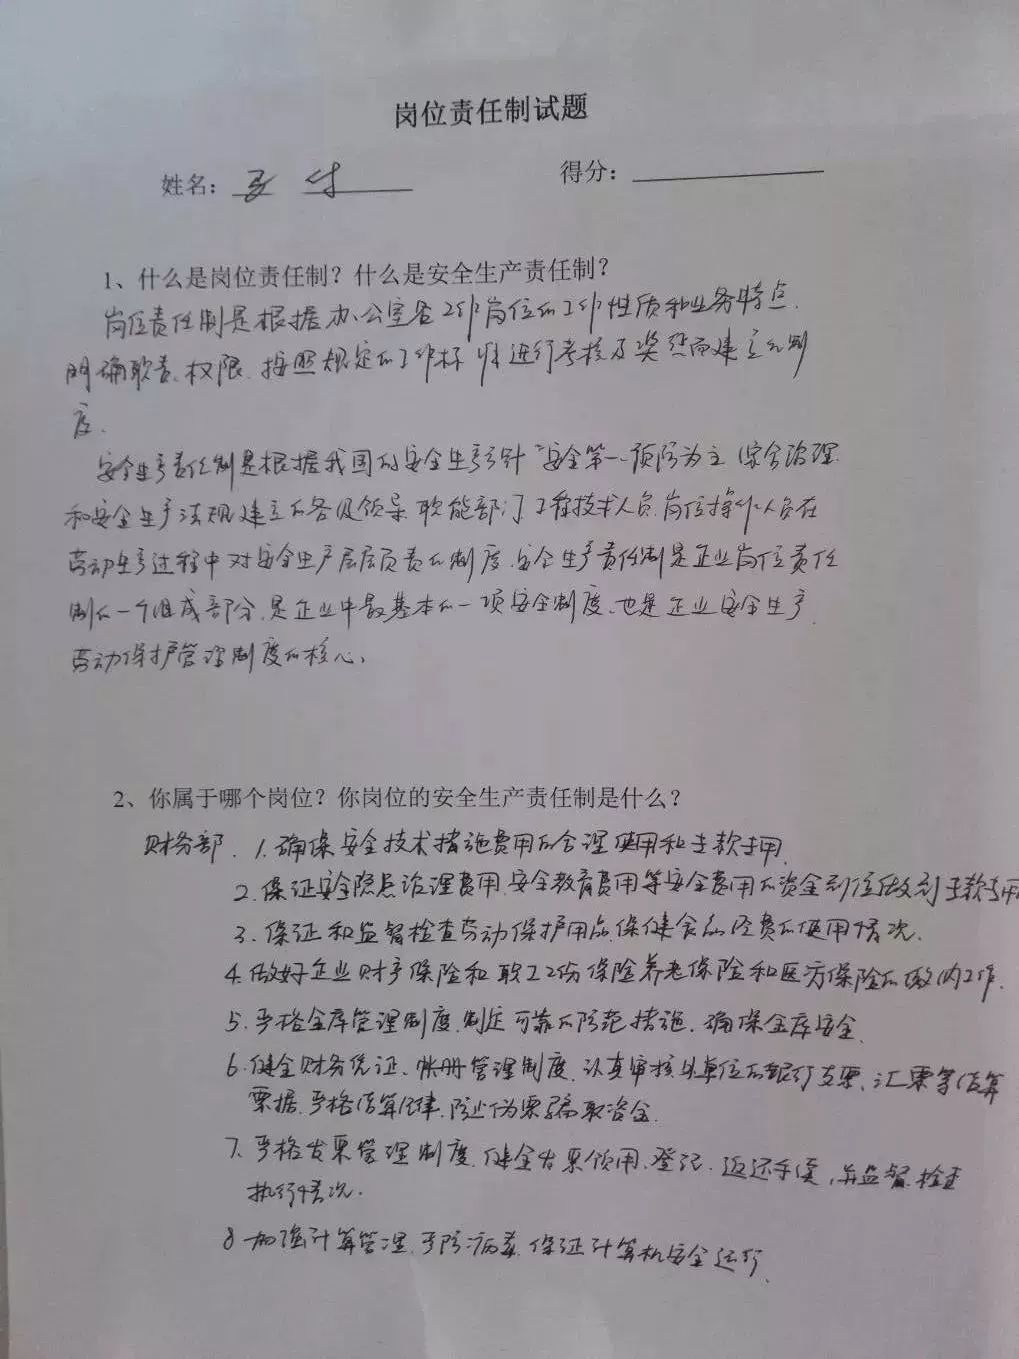 岗位责任制试题
姓名：
得分：
1、什么是岗位责任制？什么是安全生产责任制？
岗位责任制是根据办公室各工作岗位的工作性质和业务特点，
明确职责、权限、按照规定的工作标准进行考核及奖惩而建立的制
度。
安全生产责任制是根据我国的安全生产方针“安全第一、预防为主、综合治理
和安全生产法规建立的各级领导、职能部门、工程技术人员、岗位操作人员在
劳动生产过程中对安全生产层层负责的制度。安全生产责任制是企业岗位责任
制的一个组成部分，是企业中最基本的一项安全制度，也是企业安全生产
劳动保护管理制度的核心、
2、你属于哪个岗位？你岗位的安全生产责任制是什么？
财务部、1、确保安全技术措施费用的合理使用和专款专用，
2、保证安全隐患治理费用、安全教育费用等安全费用的资金到位做到专款专用
3、保证和监督检查劳动保护用品、保健食品经费的使用情况、
4、做好企业财产保险和职工工伤保险养老保险和医疗保险的缴纳工作、
5、严格金库管理制度，制定可靠的防范措施，确保金库安全
6、健全财务凭证、帐册管理制度，认真审核外单位的银行支票、汇票等结算
票据、严格结算纪律、防止伪票骗取资金、
7、严格发票管理制度、健全发票领用、登记、返还手续，并监督、检查
执行情况、
8 加强计算管理、预防病毒、保证计算机安全运行、